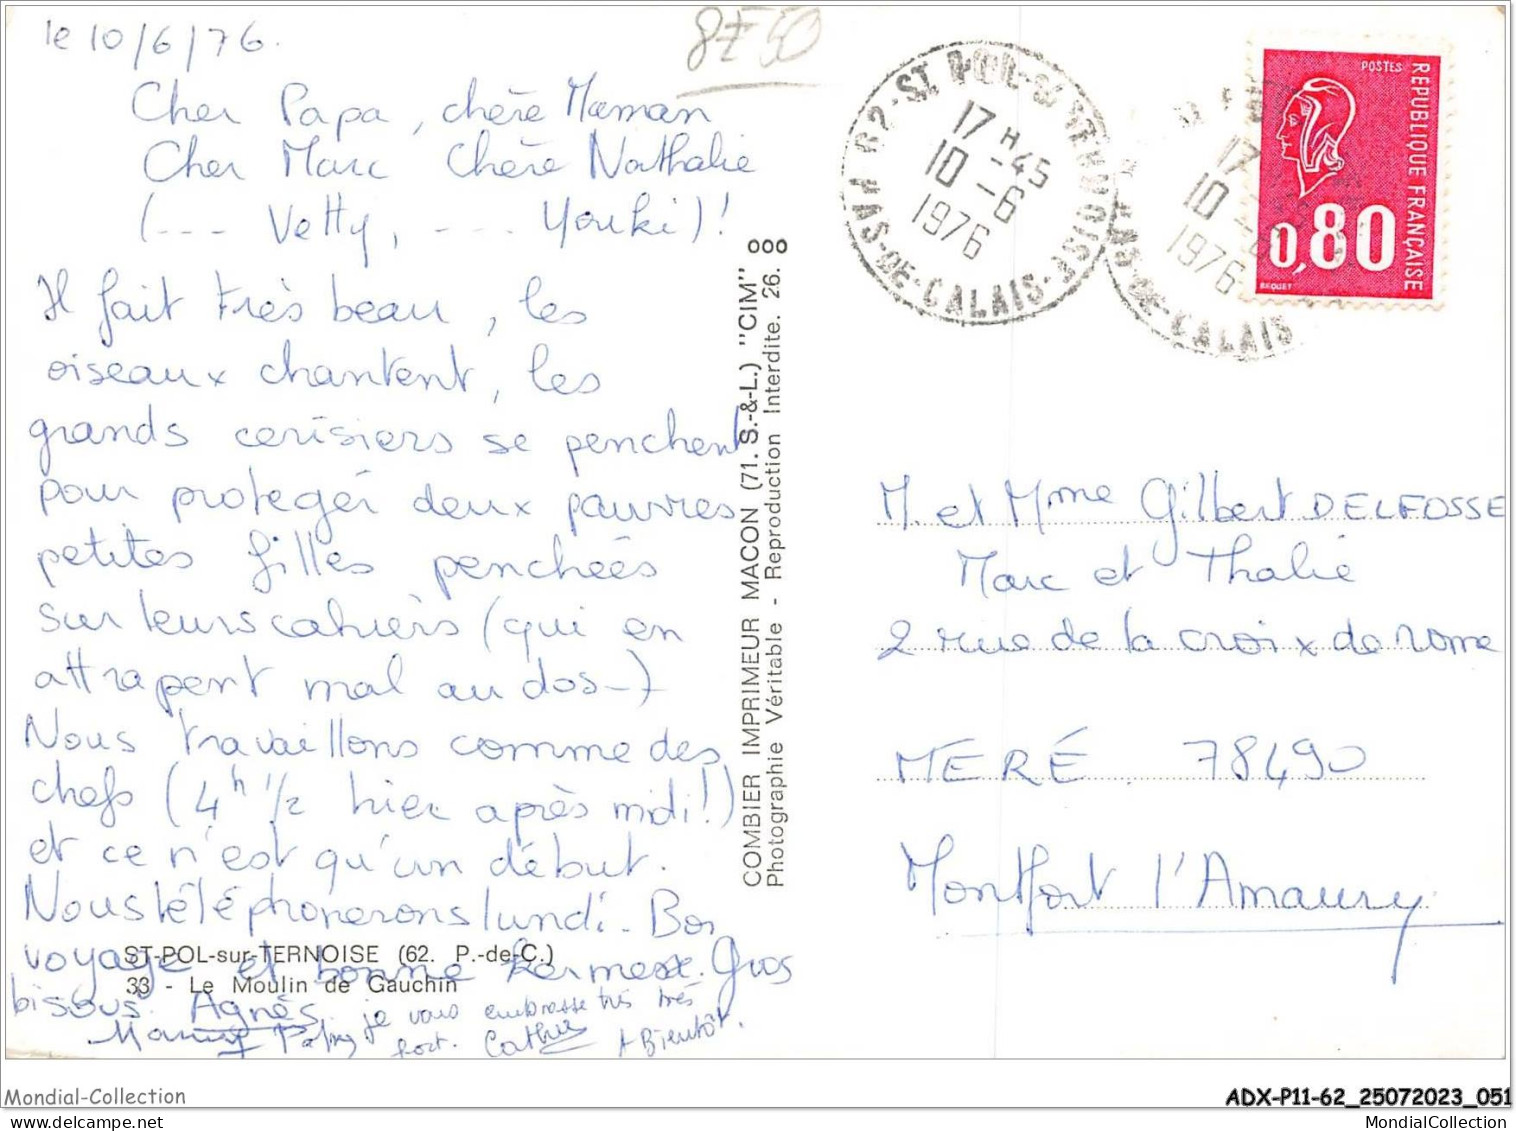 le 10/6/76.
8E50
Cher Papa, chère Maman
Cher Marc Chère Nathalie
(--- Vetty, --- Youki)!
Il fait très beau, les
oiseaux chantent, les
grands cerisiers se penchent
pour protéger deux pauvres
petites filles penchées
sur leurs cahiers (qui en
attrapent mal au dos--)
Nous travaillons comme des
chefs (4h 1/2 hier après midi!)
et ce n'est qu'un début.
Nous téléphonerons lundi. Bon
voyage et bonne kermesse. Gros
bisous. Agnès. je vous embrasse très très
Mamy Papy fort. Cathie A Bientôt.
ST-POL-sur-TERNOISE (62. P.-de-C.)
33 - Le Moulin de Gauchin
COMBIER IMPRIMEUR MACON (71. S.-&-L.) "CIM"
Photographie Véritable - Reproduction Interdite. 26.
62-ST POL-S/TERNOISE
17 H 45
10 - 6
1976
PAS-DE-CALAIS
17
10 - 6
1976
PAS-DE-CALAIS
POSTES
REPUBLIQUE FRANÇAISE
0,80
BEQUET
M. et Mme Gilbert DELFOSSE
Marc et Thalie
2 rue de la croix de rome
MERÉ 78490
Montfort l'Amaury
Mondial-Collection
ADX-P11-62_25072023_051
MondialCollection